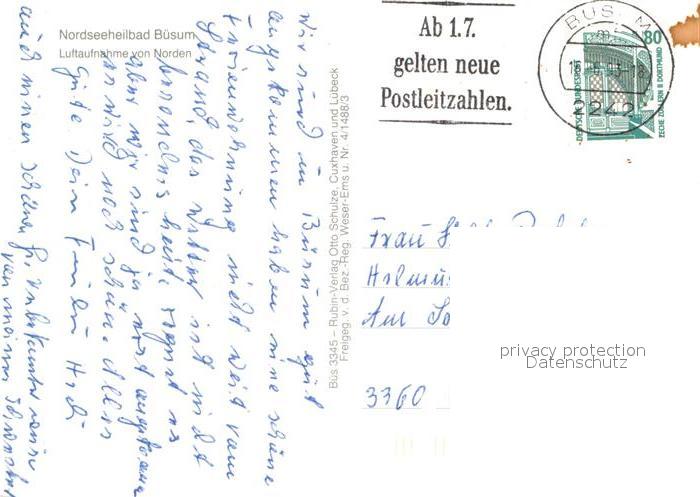 Nordseeheilbad Büsum
Luftaufnahme von Norden
wir sind in Büsum gut
angekommen haben eine schöne
Ferienwohnung nicht weit vom
Strand, das Wetter ist nicht
besonders heute regnet es
aber wir sind ja erst angekommen
es wird noch schön. Alles
Gute Dein
auch einen schönen
von meiner
Büs 3345 – Rubin-Verlag Otto Schulze, Cuxhaven und Lübeck
Freigeg. v. d. Bez.-Reg. Weser-Ems u. Nr. 4/1488/3
Ab 1.7.
gelten neue
Postleitzahlen.
BÜSUM
242
80
DEUTSCHE BUNDESPOST
ZECHE ZOLLERN II DORTMUND
Frau
Helmut
Am
3360
privacy protection
Datenschutz